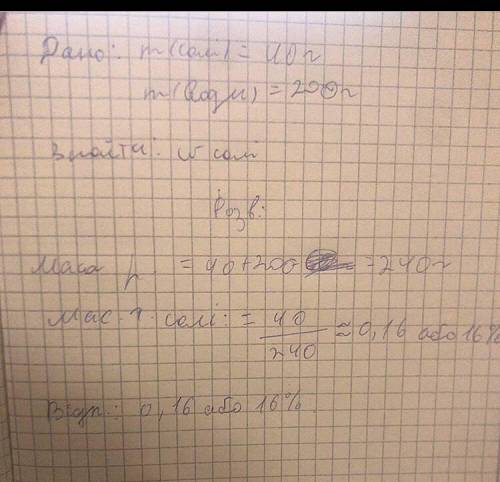 Дано: m(солі) = 40г
m(води) = 200г
Знайти: w солі
Розв:
Маса р = 40+200 = 240г
Мас. ч. солі: = 40/240 ≈ 0,16 або 16%
Відп.: 0,16 або 16%